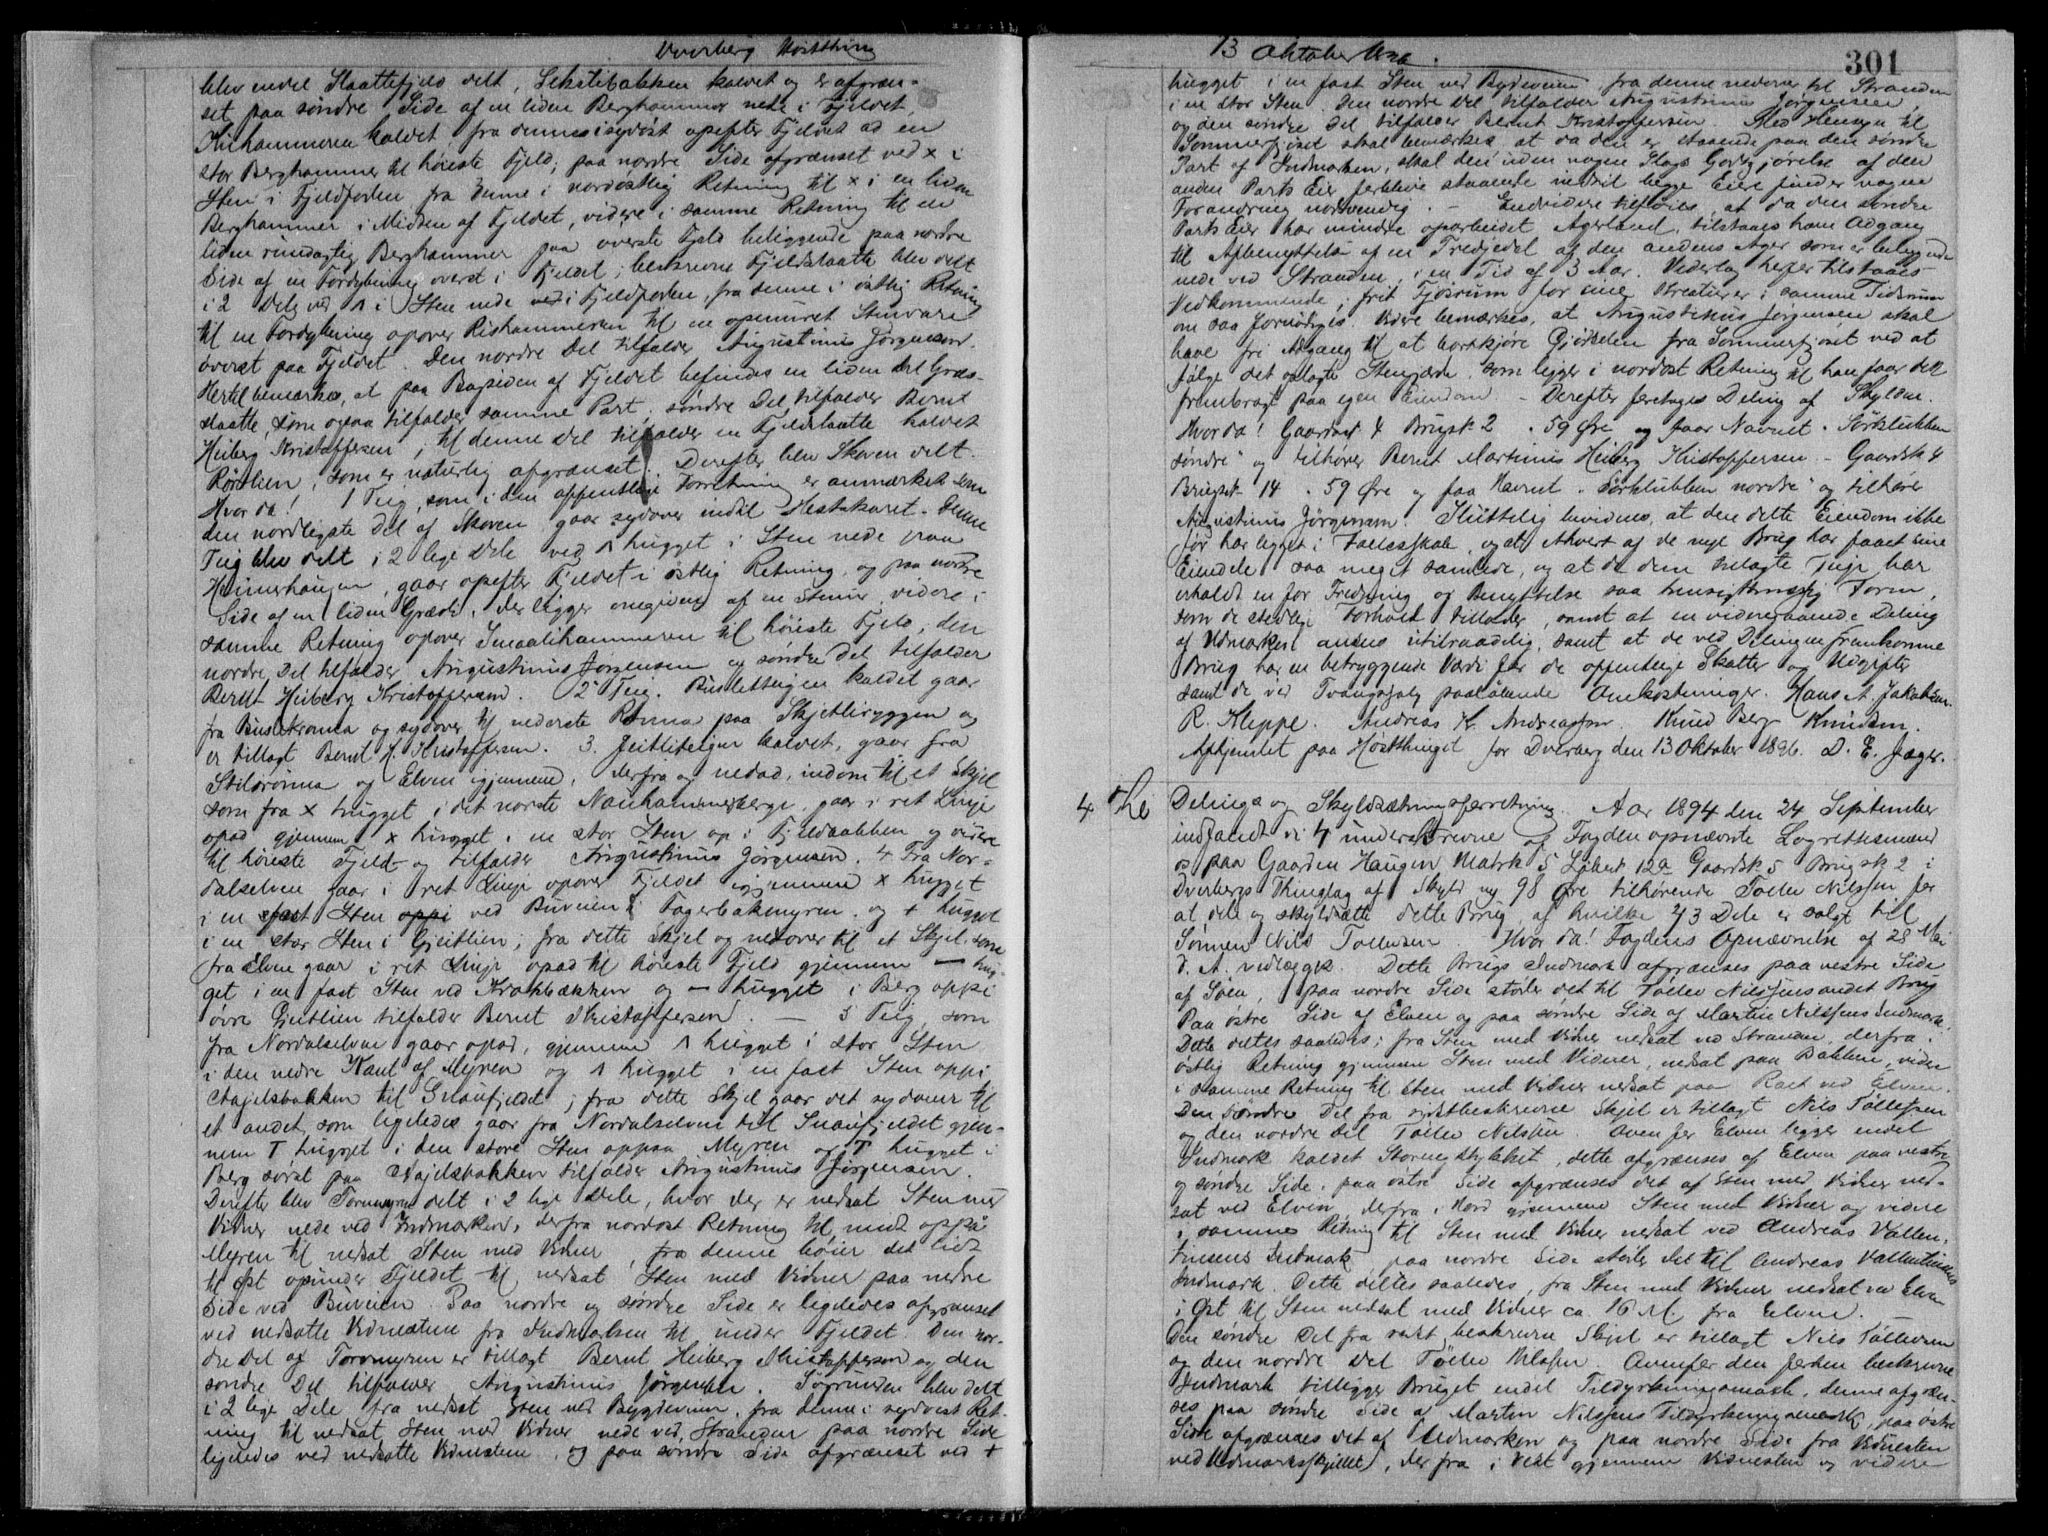 Dverberg Høstthing
blev endel Slaattefjeld delt, Sekstibakken kaldet og er afgræn-
set paa søndre Side af en liden Berghammer nede i Fjeldet,
Kirhammeren kaldet, fra denne i sydøst opefter Fjeldet ad en
stor Berghammer til høieste Fjeld; paa nordre Side afgrænset ved x i
Sten i Fjeldfoden fra denne i nordøstlig Retning til x i en liden
Berghammer i Midten af Fjeldet, videre i samme Retning til en
liden rundagtig Berghammer paa øverste Fjeld beliggende paa nordre
Side af en Fordybning øverst i Fjeldet; beskrevne Fjeldslaatte blev delt
i 2 Dele ved 1 i Sten nede ved i Fjeldfoden, fra denne i østlig Retning
til en Fordybning opover Rishammeren til en opmuret Stenvare
øverst paa Fjeldet. Den nordre Del tilfalder Augustinus Jørgensen.
Hertil bemærkes, at paa Bagsiden af Fjeldet befindes en liden Del Græs-
slaatte, som ogsaa tilfalder samme Part. søndre Del tilfalder Bernt
Heiberg Kristoffersen; til denne Del tilfalder en Fjeldslaatte kaldet
Rørslien, som er naturlig afgrænset. Derefter blev Skoven delt.
Hvor da! 1 Teig, som i den offentlige Forretning er anmærket som
den nordligste Del af Skoven gaar sydover indtil Hestskaret. Denne
Teig blev delt i 2 lige Dele ved 1 hugget i Sten nede paa
Heimerhaugen, gaar opefter Fjeldet i østlig Retning, og paa nordre
Side af en liden Græde, der ligger omgiven af en Stenur, videre i
samme Retning opover Smaalihammeren til høieste Fjeld, den
nordre Del tilfalder Augustinus Jørgensen og søndre Del tilfalder
Bernt Heiberg Kristoffersen. 2 Teig. Busletteigen kaldet gaar
fra Busletrønna og sydover til nederste Rønna paa Skjetliryggen og
er tillagt Bernt H. Kristoffersen. 3. Jeitliteigen kaldet, gaar fra
Stilrønna og Elven igjennem, derfra og nedad, indom til et Skjel
som fra x hugget i det nørste Nauhammerberge, gaar i ret Linje
opad gjennem x hugget i en stor Sten op i Fjeldbakken og videre
til høieste Fjeld og tilfalder Augustinus Jørgensen. 4 Fra Nor-
dalselven gaar i ret Linje opover Fjeldet igjennem x hugget
i en fast Sten oppi ved Buveien i Fagerbakmyren og + hugget
i en stor Sten i Gjeitlien; fra dette Skjel og nedover til et Skjel, som
fra Elven gaar i ret Linje opad til høieste Fjeld gjennem — hug-
get i en fast Sten ved Krokbækken og — hugget i Berg oppi
øvre Gjeitlien tilfalder Bernt Kristoffersen. — 5 Teig, som
fra Nordalselven gaar opad, gjennem 1 hugget i stor Sten
i den nedre Kant af Myren og 1 hugget i en fast Sten oppi
bakken til Snaufjeldet; fra dette Skjel gaar det sydover til
et andet, som ligeledes gaar fra Nordalselven til Snaufjeldet gjen-
nem T hugget i den store Sten oppaa Myren og T hugget i
Berg sørst paa bakken tilfalder Augustinus Jørgensen.
Derefter blev Torvmyren delt i 2 lige Dele, hvor der er nedsat Sten med
Vidner nede ved Indmarken, derfra nordost Retning til midt oppi
Myren til nedsat Sten med Vidner, fra denne bøier det lidt
til Øst opunder Fjeldet til nedsat Sten med Vidner paa nedre
Side ved Buveien. Paa nordre og søndre Side er ligeledes afgrænset
ved nedsatte Vidnesten fra Indmarken til under Fjeldet. Den nor-
dre Del af Torvmyren er tillagt Bernt Heiberg Kristoffersen og den
søndre Del tilfalder Augustinus Jørgensen. Søgrunden blev delt
i 2 lige Dele fra nedsat Sten ved Bygdeveien, fra denne i sydvest Ret-
ning til nedsat Sten med Vidner nede ved Stranden paa nordre Side
ligeledes ved nedsatte Vidnesten, og paa søndre Side afgrænset ved +
13 Oktober 1896.
301
hugget i en fast Sten ved Bygdeveien fra denne nedover til Stranden
i en stor Sten. Den nordre Del tilfalder Augustinus Jørgensen,
og den søndre Del tilfalder Bernt Kristoffersen. Med Hensyn til
Sommerfjøset skal bemærkes at da den er staaende paa den søndre
Part af Indmarken, skal den uden nogen Slags Godtgjørelse af den
anden Parts Eier forblive staaende indtil begge Eiere finder nogen
Forandring nødvendig. — Endvidere tilføies, at da den søndre
Parts Eier har mindre oparbeidet Agerland, tilstaaes ham Adgang
til Afbenyttelse af en Tredjedel af den andens Ager som er beliggende
nede ved Stranden, i en Tid af 3 Aar. Vederlag herfor tilstaaes
Vedkommende; frit Fjøsrum for sine Kreaturer i samme Tidsrum
om saa fornødiges. Videre bemærkes, at Augustinus Jørgensen skal
have fri Adgang til at bortkjøre Gjødselen fra Sommerfjøset ved at
følge det oplagte Stengjærde, som ligger i nordøst Retning til han faar det
frembragt paa egen Eiendom — Derefter foretages Deling af Skylden.
Hvor da! Gaardsk 4 Brugsk 2. 59 Øre og faar Navnet „Sørklubben
søndre" og tilhører Bernt Martinus Heiberg Kristoffersen — Gaardsk 4
Brugsk 14. 59 Øre og faar Navnet „Sørklubben nordre" og tilhører
Augustinus Jørgensen. Sluttelig bevidnes, at den delte Eiendom ikke
før har ligget i Fællesskab, og at ethvert af de nye Brug har faaet sine
Eiendele saa meget samlede, og at de dem tillagte Teige har
erholdt en for Fredning og Benyttelse saa hensigtsmæssig Form,
som de stedlige Forhold tillader, samt at en videregaaende Deling
af Udmarken ansees utilraadelig, samt at de ved Delingen fremkomne
Brug har en betryggende Værdi for de offentlige Skatter og Udgifter
samt de ved Tvangssalg paaløbende Omkostninger. Hans A. Jakobsen.
R. Kleppe. Andreas H. Andreassen. Knud Berg Knudsen.
Afhjemlet paa Høstthinget for Dverberg den 13 Oktober 1896. D. E. Jæger.
4 Delings og Skyldsætningsforretning. Aar 1894 den 24 September
indfandt vi 4 underskrevne af Fogden opnævnte Lagrettesmænd
os paa Gaarden Haugen Matrk 5 Løbek 12a Gaardsk 5 Brugsk 2 i
Dverbergs Thinglag af Skyld ny 98 Øre tilhørende Tollev Nilssen for
at dele og skyldsætte dette Brug af hvilke 2/3 Dele er solgt til
Sønnen Nils Tollevsen. Hvor da! Fogdens Opnævnelse af 28 Mai
d. A. vedlægges. Dette Brugs Indmark afgrænses paa vestre Side
af Søen, paa nordre Side støder det til Tollev Nilssens andet Brug
Paa østre Side af Elven og paa søndre Side af Martin Nilssens Indmark.
Dette deltes saaledes; fra Sten med Vidner nedsat ved Stranden, derfra i
østlig Retning gjennem Sten med Vidner, nedsat paa Bakken, videre
i samme Retning til Sten med Vidner nedsat paa Raet ved Elven.
Den søndre Del fra sidstbeskrevne Skjel er tillagt Nils Tollefsen
og den nordre Del Tollev Nilssen. Ovenfor Elven ligger endel
Indmark kaldet Storengstykket, dette afgrænses af Elven paa vestre
og søndre Side, paa østre Side afgrænses det af Sten med Vidner ned-
sat ved Elven, derfra i Nord gjennem Sten med Vidner og videre
i samme Retning til Sten med Vidner nedsat ved Andreas Vallen-
tinsens Indmark, paa nordre Side støder det til Andreas Vallentinsens
Indmark. Dette deltes saaledes, fra Sten med Vidner nedsat ved Elven
i Øst til Sten nedsat med Vidner ca. 16 M fra Elven. —
Den søndre Del fra sidst beskrevne Skjel er tillagt Nils Tollevsen
og den nordre Del Tollev Nilssen. Ovenfor den førben beskrevne
Indmark tilligger Bruget endel Tildyrkningsmark, denne afgræn-
ses paa søndre Side af Martin Nilssens Tildyrkningsmark, paa østre
Side afgrændes det af Udmarken og paa nordre Side fra Vidnesten
ved Udmarksskjellet, derfra i Vest gjennem Vidnesten og videre